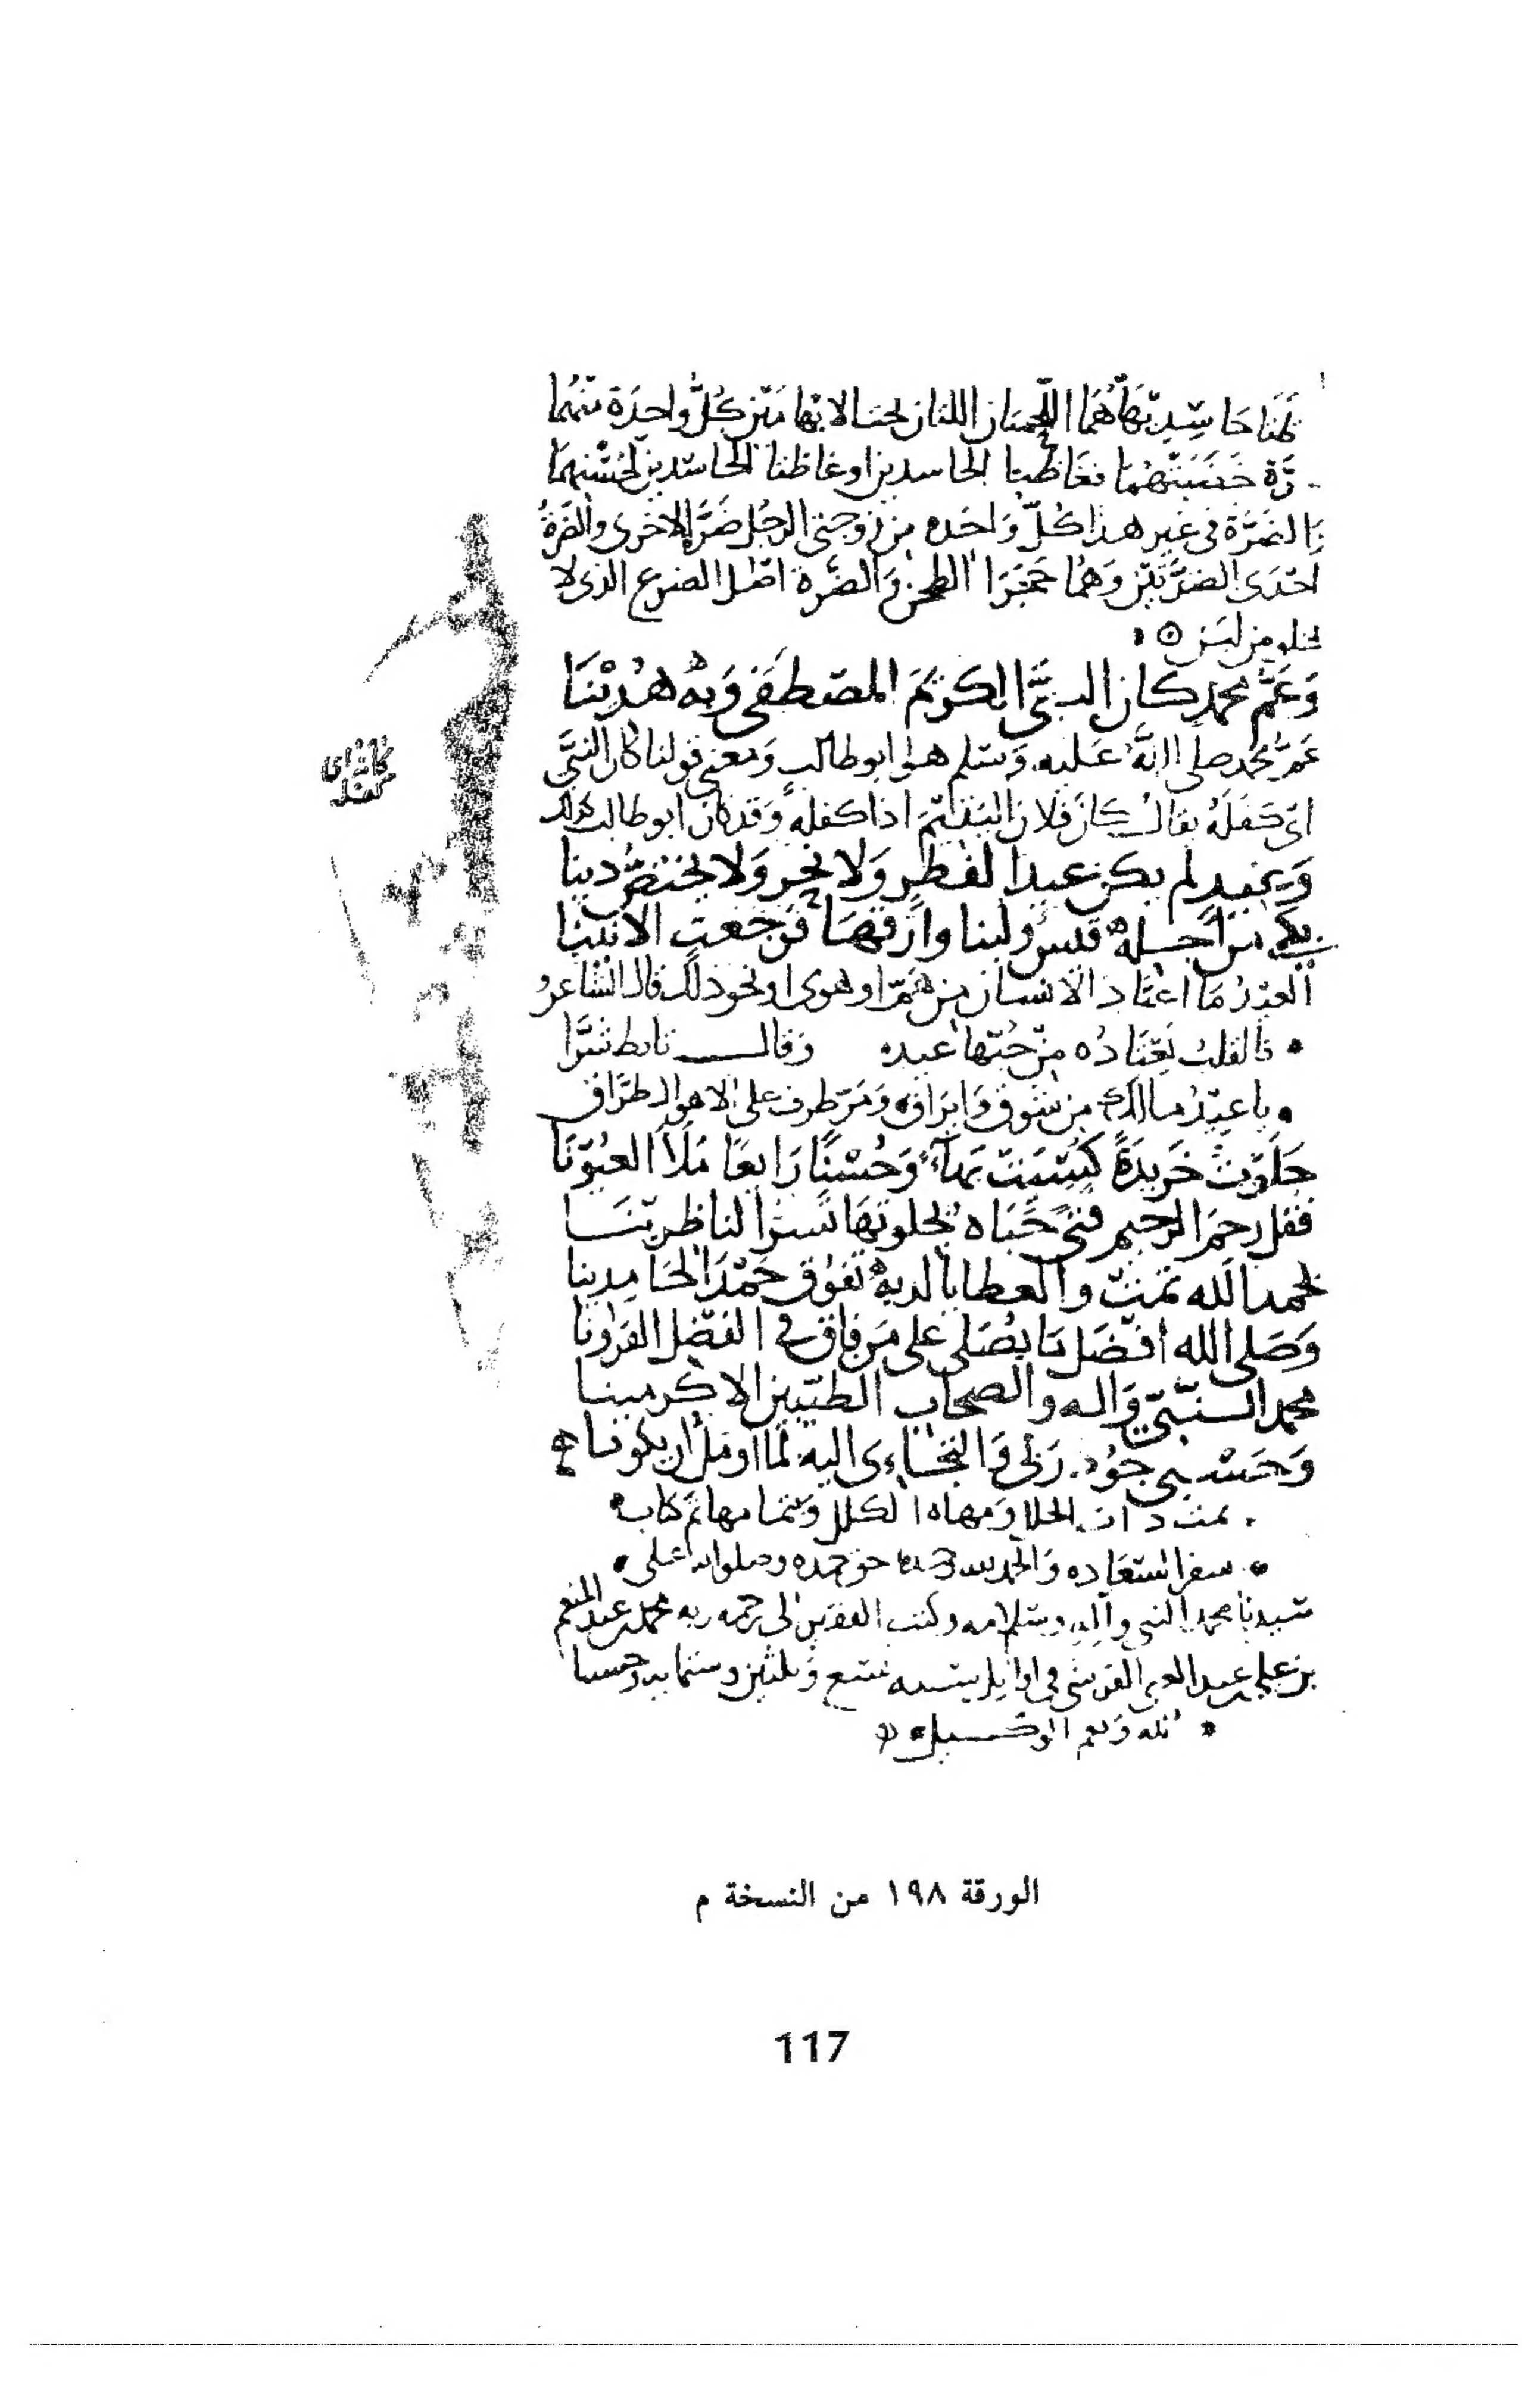 هما اللحمتان اللتان تحت الابهامين كل واحدة منهما
الحاسدين او غاظتا الحاسدين لحسنهما
الضرة في غير هذا كل واحده من زوجتي الرجل ضرة الاخرى والضرة
احدى الضرتين وهما حجرا الطحن والضرة اصل الضرع الذي لا
يخلو من لبن
وَعَمّ محمد كان النبيّ الكريم المصطفى وبه هُدينَا
عمّ محمد صلى الله عليه وسلم هو ابو طالب ومعنى قولنا كان النبيَّ
اي كفله يقال كان فلان اليتيم اذا كفله وقد كان ابو طالب كذلك
كان اي كفل
وعيد لم يكن عيد الفطر ولا نحر ولا يختص دينا
من اجله قيس ولبنا وارقها فرجعت الانينا
العيد ما اعتاد الانسان من همّ او هوى او نحو ذلك قال الشاعر
• فالقلب يعتاده من حبها عيد وقال تابط شرّا
• يا عيد مالك من شوق وايراق ومرّ طيف على الاهوال طرّاق
جلوت خريدة وحسنًا رايعًا ملأ العيونا
فقل رحم الرحيم فتى حباه بجلوتها تسر الناظرينا
بحمد الله تمت والعطايا لديه تفوق حمد الحامدينا
وصلى الله افضل ما يصلي على من فاق في الفضل القرونا
محمد النبي واله والصحاب الطيبين الاكرمينا
وحسبي جود ربي والتجاءى اليه لما اومل ان يكونا
تمت ذات الحلل ومهاة الكلل وبتمامها تم كتاب
• سفر السعاده والحمد لله حق حمده وصلواته على •
سيدنا محمد النبي وآله وسلامه وكتب الفقير الى رحمه ربه محمد بن عبد المنعم
بن علي عبد الغني القرشي في اوايل سنه تسع وثلثين وستمايه وحسبنا
• الله ونعم الوكيل •
الورقة ١٩٨ من النسخة م
117